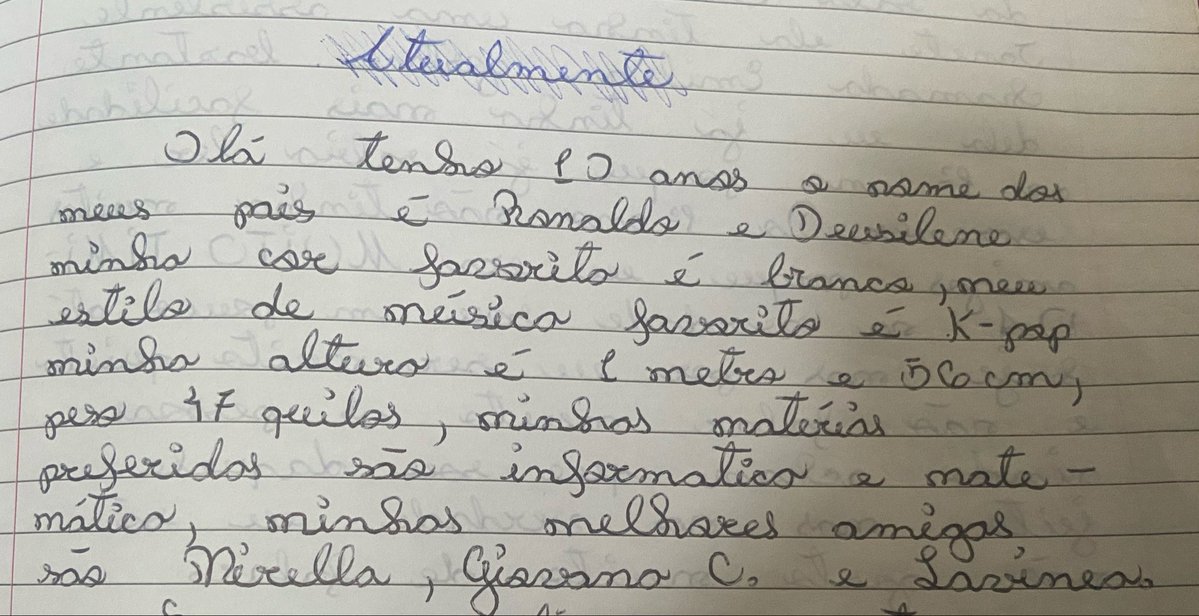 Atualmente
Olá tenho 10 anos o nome dos
meus pais é Ronaldo e Deusilene
minha cor favorita é branco, meu
estilo de música favorito é K-pop
minha altura é 1 metro e 56 cm,
peso 47 quilos, minhas matérias
preferidas são informatica e mate-
mática, minhas melhores amigas
são Mirella, Giovana C. e Lavinea.